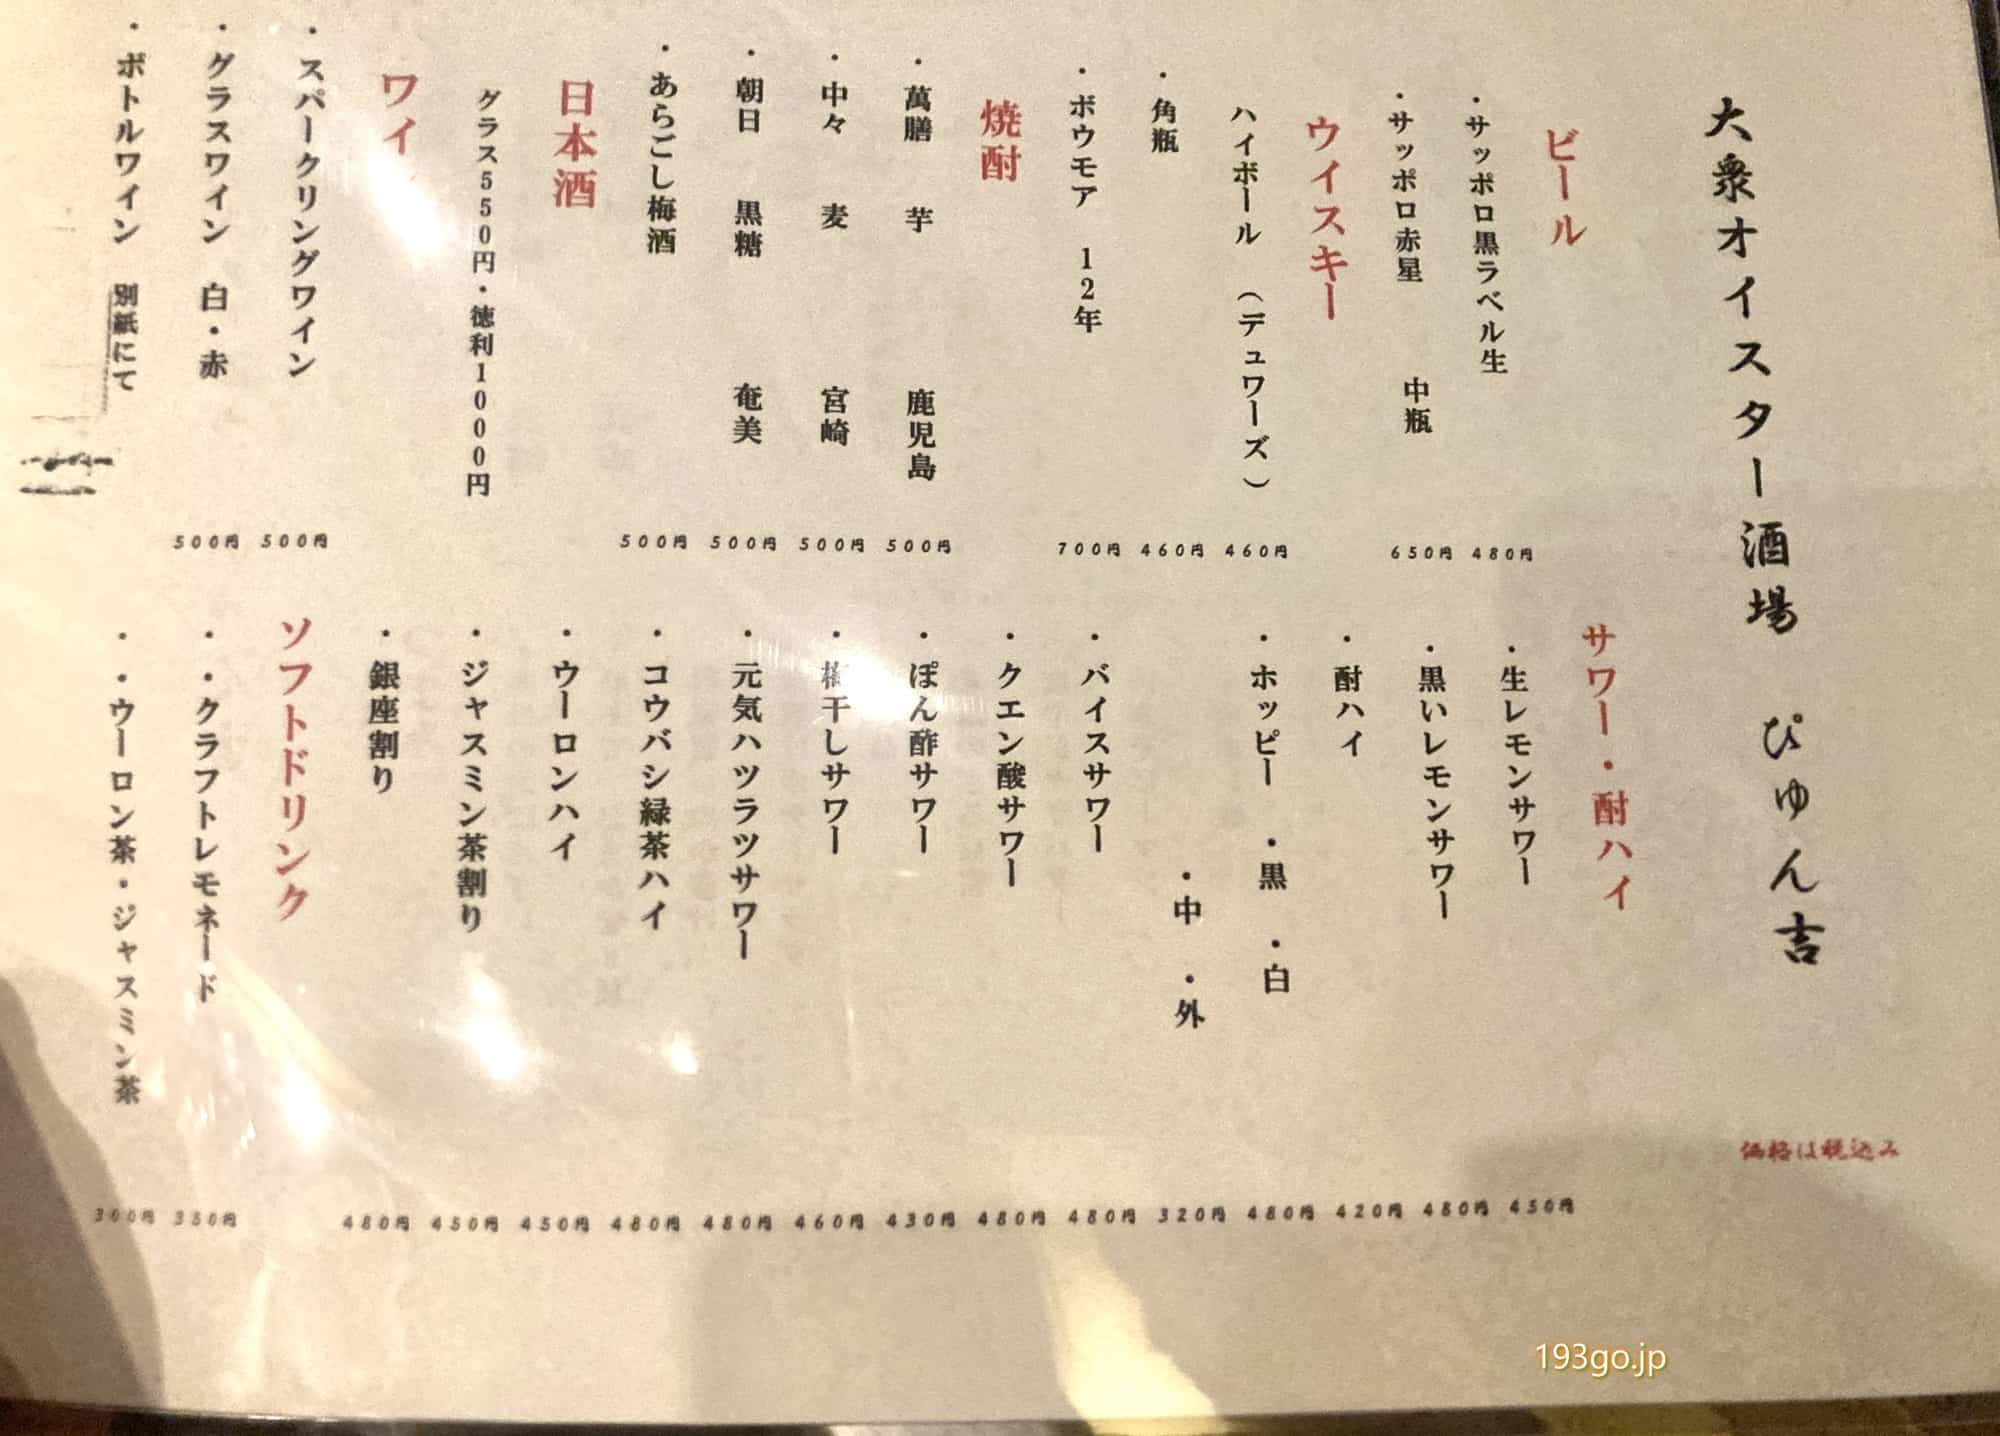 大衆オイスター酒場 ぴゅん吉
価格は税込み
ビール
・サッポロ黒ラベル生 480円
・サッポロ赤星 中瓶 650円
ウイスキー
ハイボール (デュワーズ) 460円
・角瓶 460円
・ボウモア 12年 700円
焼酎
・萬膳 芋 鹿児島 500円
・中々 麦 宮崎 500円
・朝日 黒糖 奄美 500円
・あらごし梅酒 500円
日本酒
グラス550円・徳利1000円
ワイ
・スパークリングワイン 500円
・グラスワイン 白・赤 500円
・ボトルワイン 別紙にて
サワー・酎ハイ
・生レモンサワー 450円
・黒いレモンサワー 480円
・酎ハイ 420円
・ホッピー ・黒 ・白 480円
・中 ・外 320円
・バイスサワー 480円
・クエン酸サワー 480円
・ぽん酢サワー 430円
・梅干しサワー 460円
・元気ハツラツサワー 480円
・コウバシ緑茶ハイ 480円
・ウーロンハイ 450円
・ジャスミン茶割り 450円
・銀座割り 480円
ソフトドリンク
・・クラフトレモネード 350円
・・ウーロン茶・ジャスミン茶 300円
193go.jp